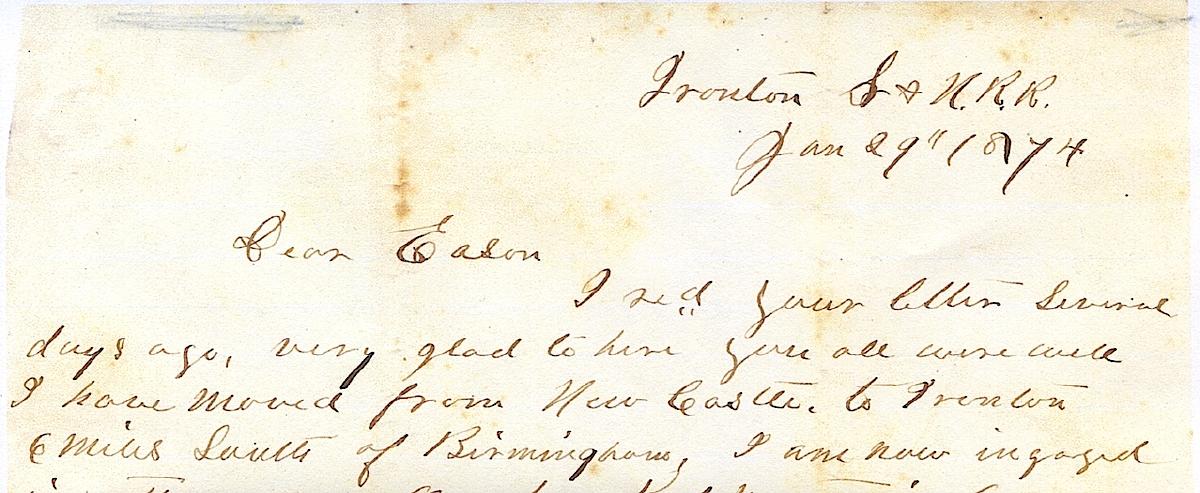 Ironton S & N.R.R.
Jan 29" 1874
Dear Eason
I recd your letter several
days ago, very glad to here you all were well
I have moved from New Castle. to Ironton
6 miles South of Birmingham, I am now ingaged